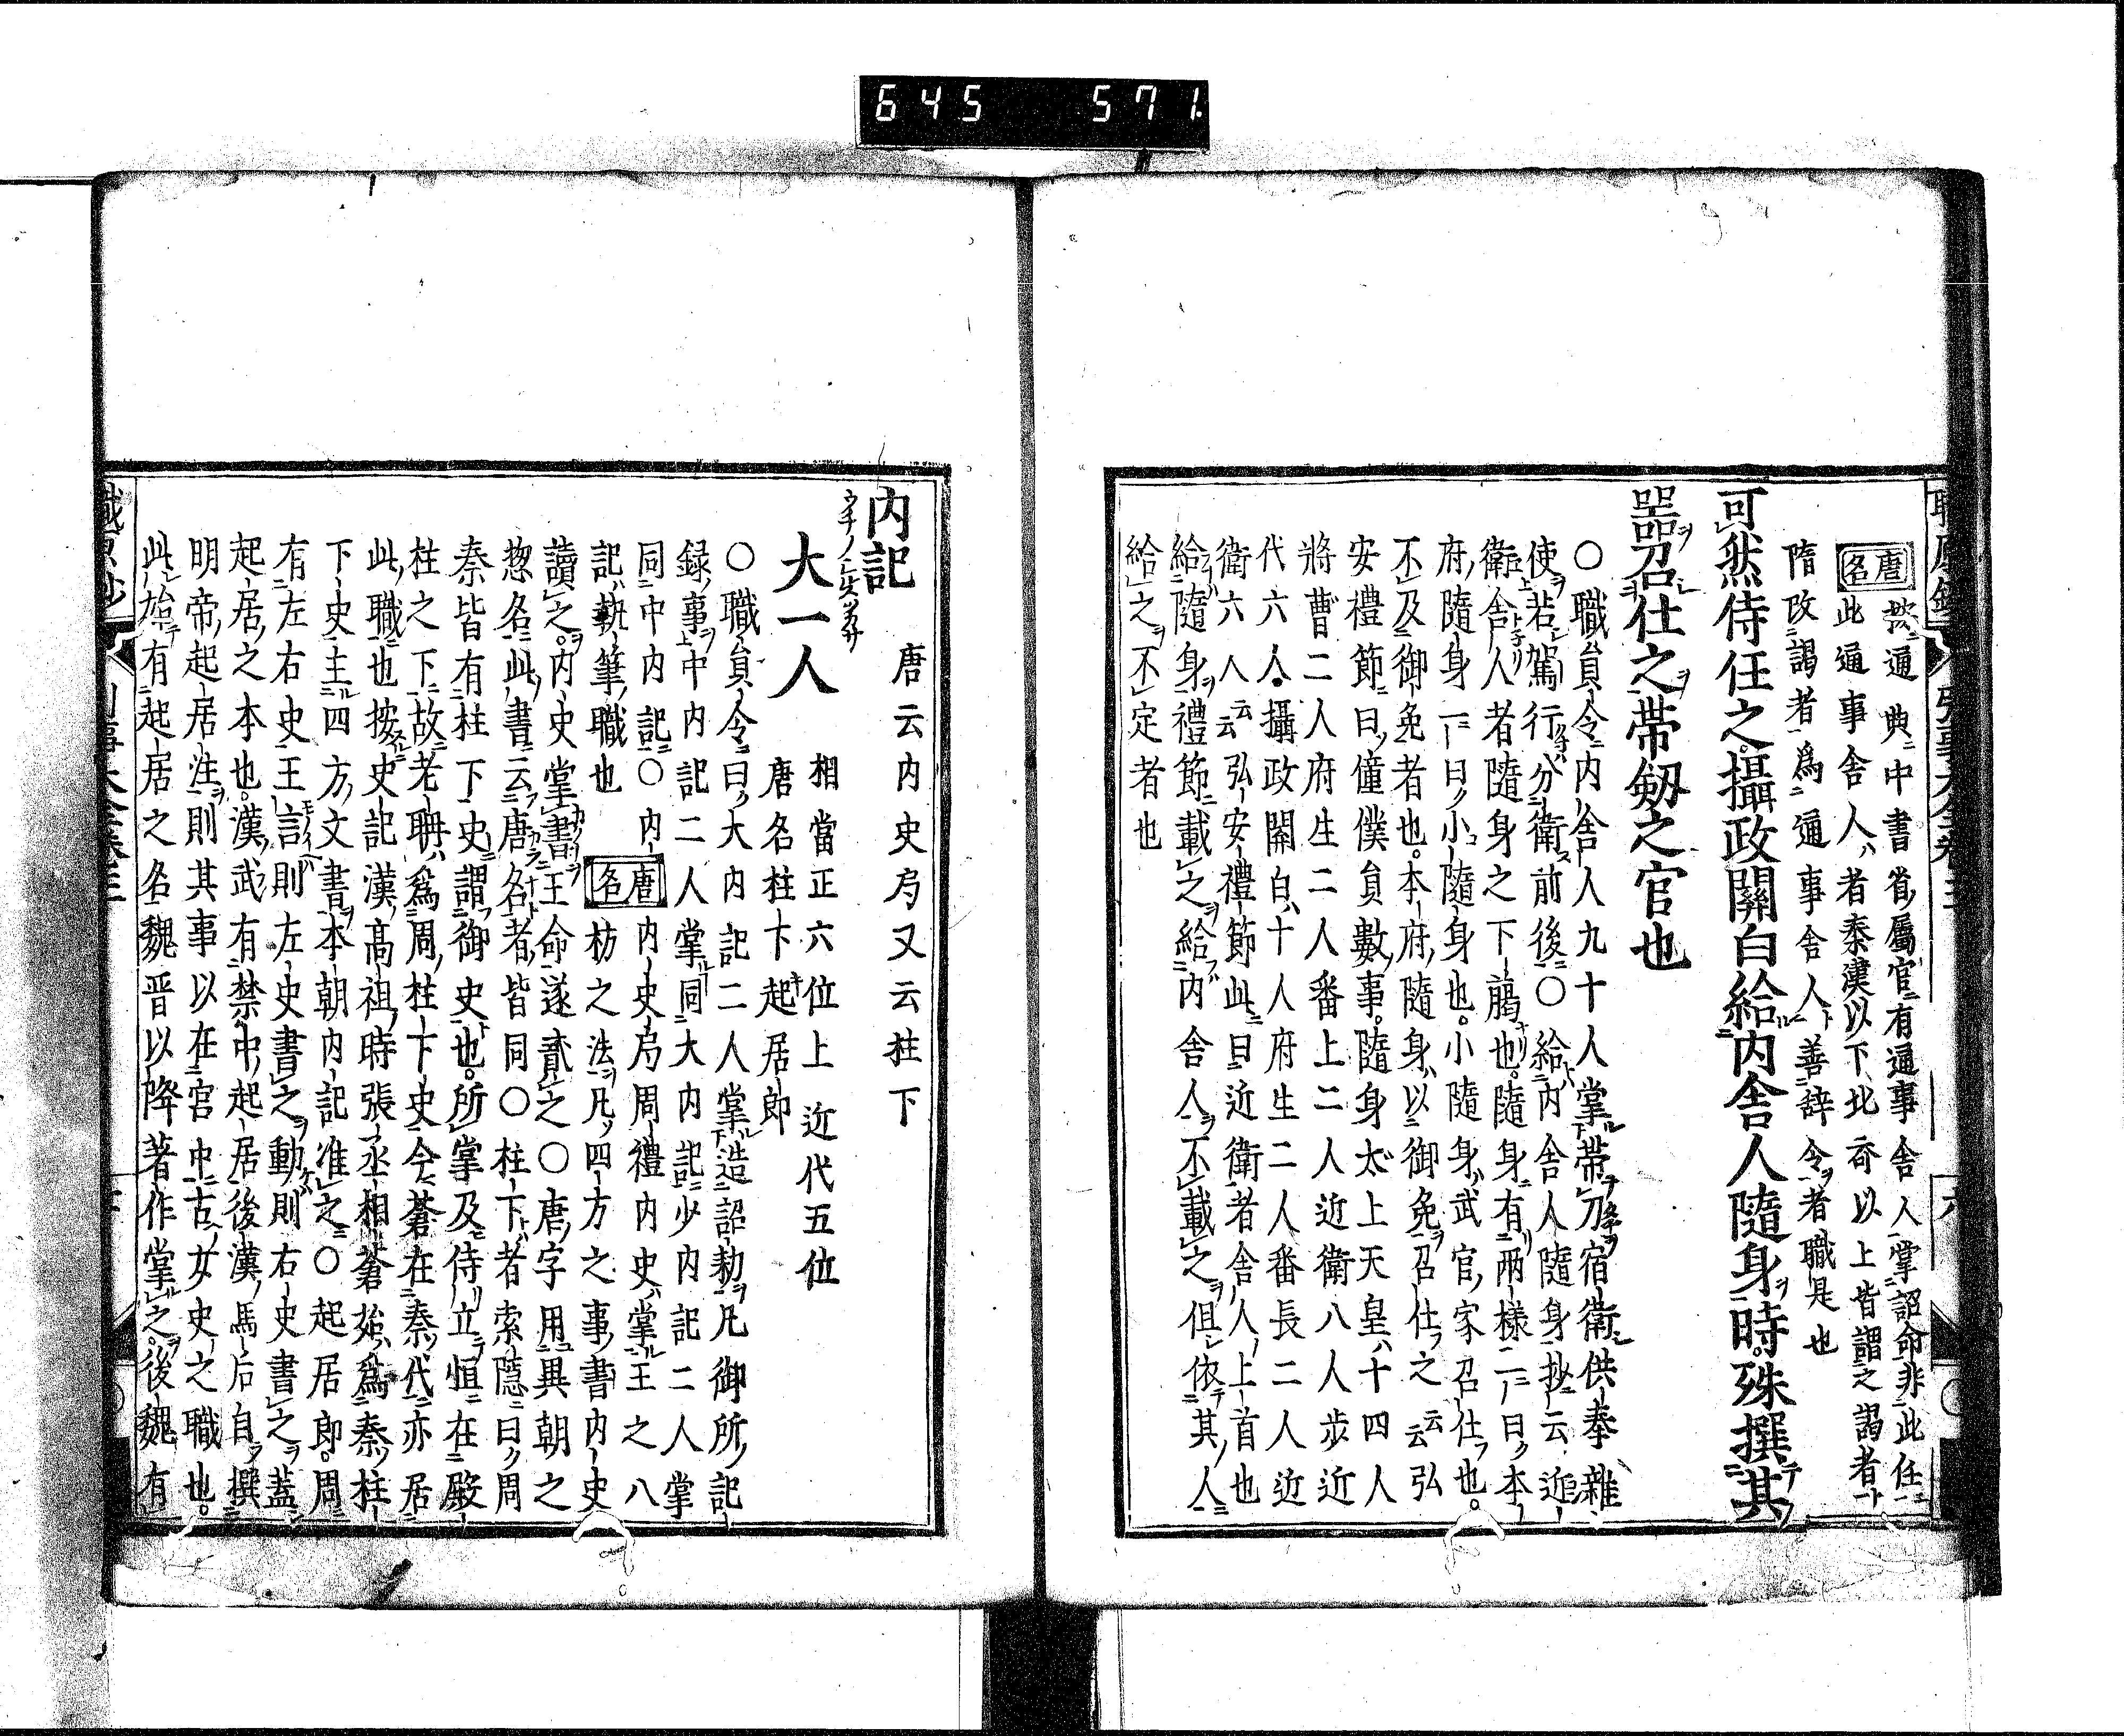 645 571
唐名 按通典中書省屬官有通事舍人掌詔命非此任
此通事舍人者秦漢以下北斉以上皆謂之謁者
隋改謁者爲通事舍人善辞令者職是也
可然侍任之攝政關白給内舎人隨身時殊撰其
器召仕之帯釼之官也
○職員令内舎人九十人掌帯刀宿衛供奉雜
使若駕行分衛前後○給内舎人隨身抄云近
衛舎人者隨身之下﨟也隨身有兩様二曰本
府隨身一曰小隨身也小隨身武官家召仕也
不及御免者也本府隨身以御免召仕之云云弘
安禮節曰僮僕員數事隨身太上天皇十四人
將曹二人府生二人番上二人近衛八人歩近
代六人攝政關白十人府生二人番長二人近
衛六人云云弘安禮節此曰近衛者舎人上首也
給隨身禮節載之給内舎人不載之但依其人
給之不定者也
内記 唐云内史局又云柱下
大一人 相當正六位上 近代五位
唐名柱下起居郎
○職員令曰大内記二人掌造詔勅凡御所記
録事中内記二人掌同大内記少内記二人掌
同中内記○内史局周禮内史掌王之八
記執筆職也 唐名 枋之法凡四方之事書内史
讀之内史掌書王命遂貳之○唐字用異朝之
惣名此書云唐名者皆同○柱下者索隠曰周
秦皆有柱下史謂御史也所掌及侍立恒在殿
柱之下故老聃爲周柱下史今蒼在秦代亦居
此職也按史記漢高祖時張丞相蒼始爲秦柱
下史主四方文書本朝内記准之○起居郎周
有左右史王言則左史書之動則右史書之蓋
起居之本也漢武有禁中起居後漢馬后自撰
明帝起居注則其事以在宮中古女史之職也
此始有起居之名魏晋以降著作掌之後魏有